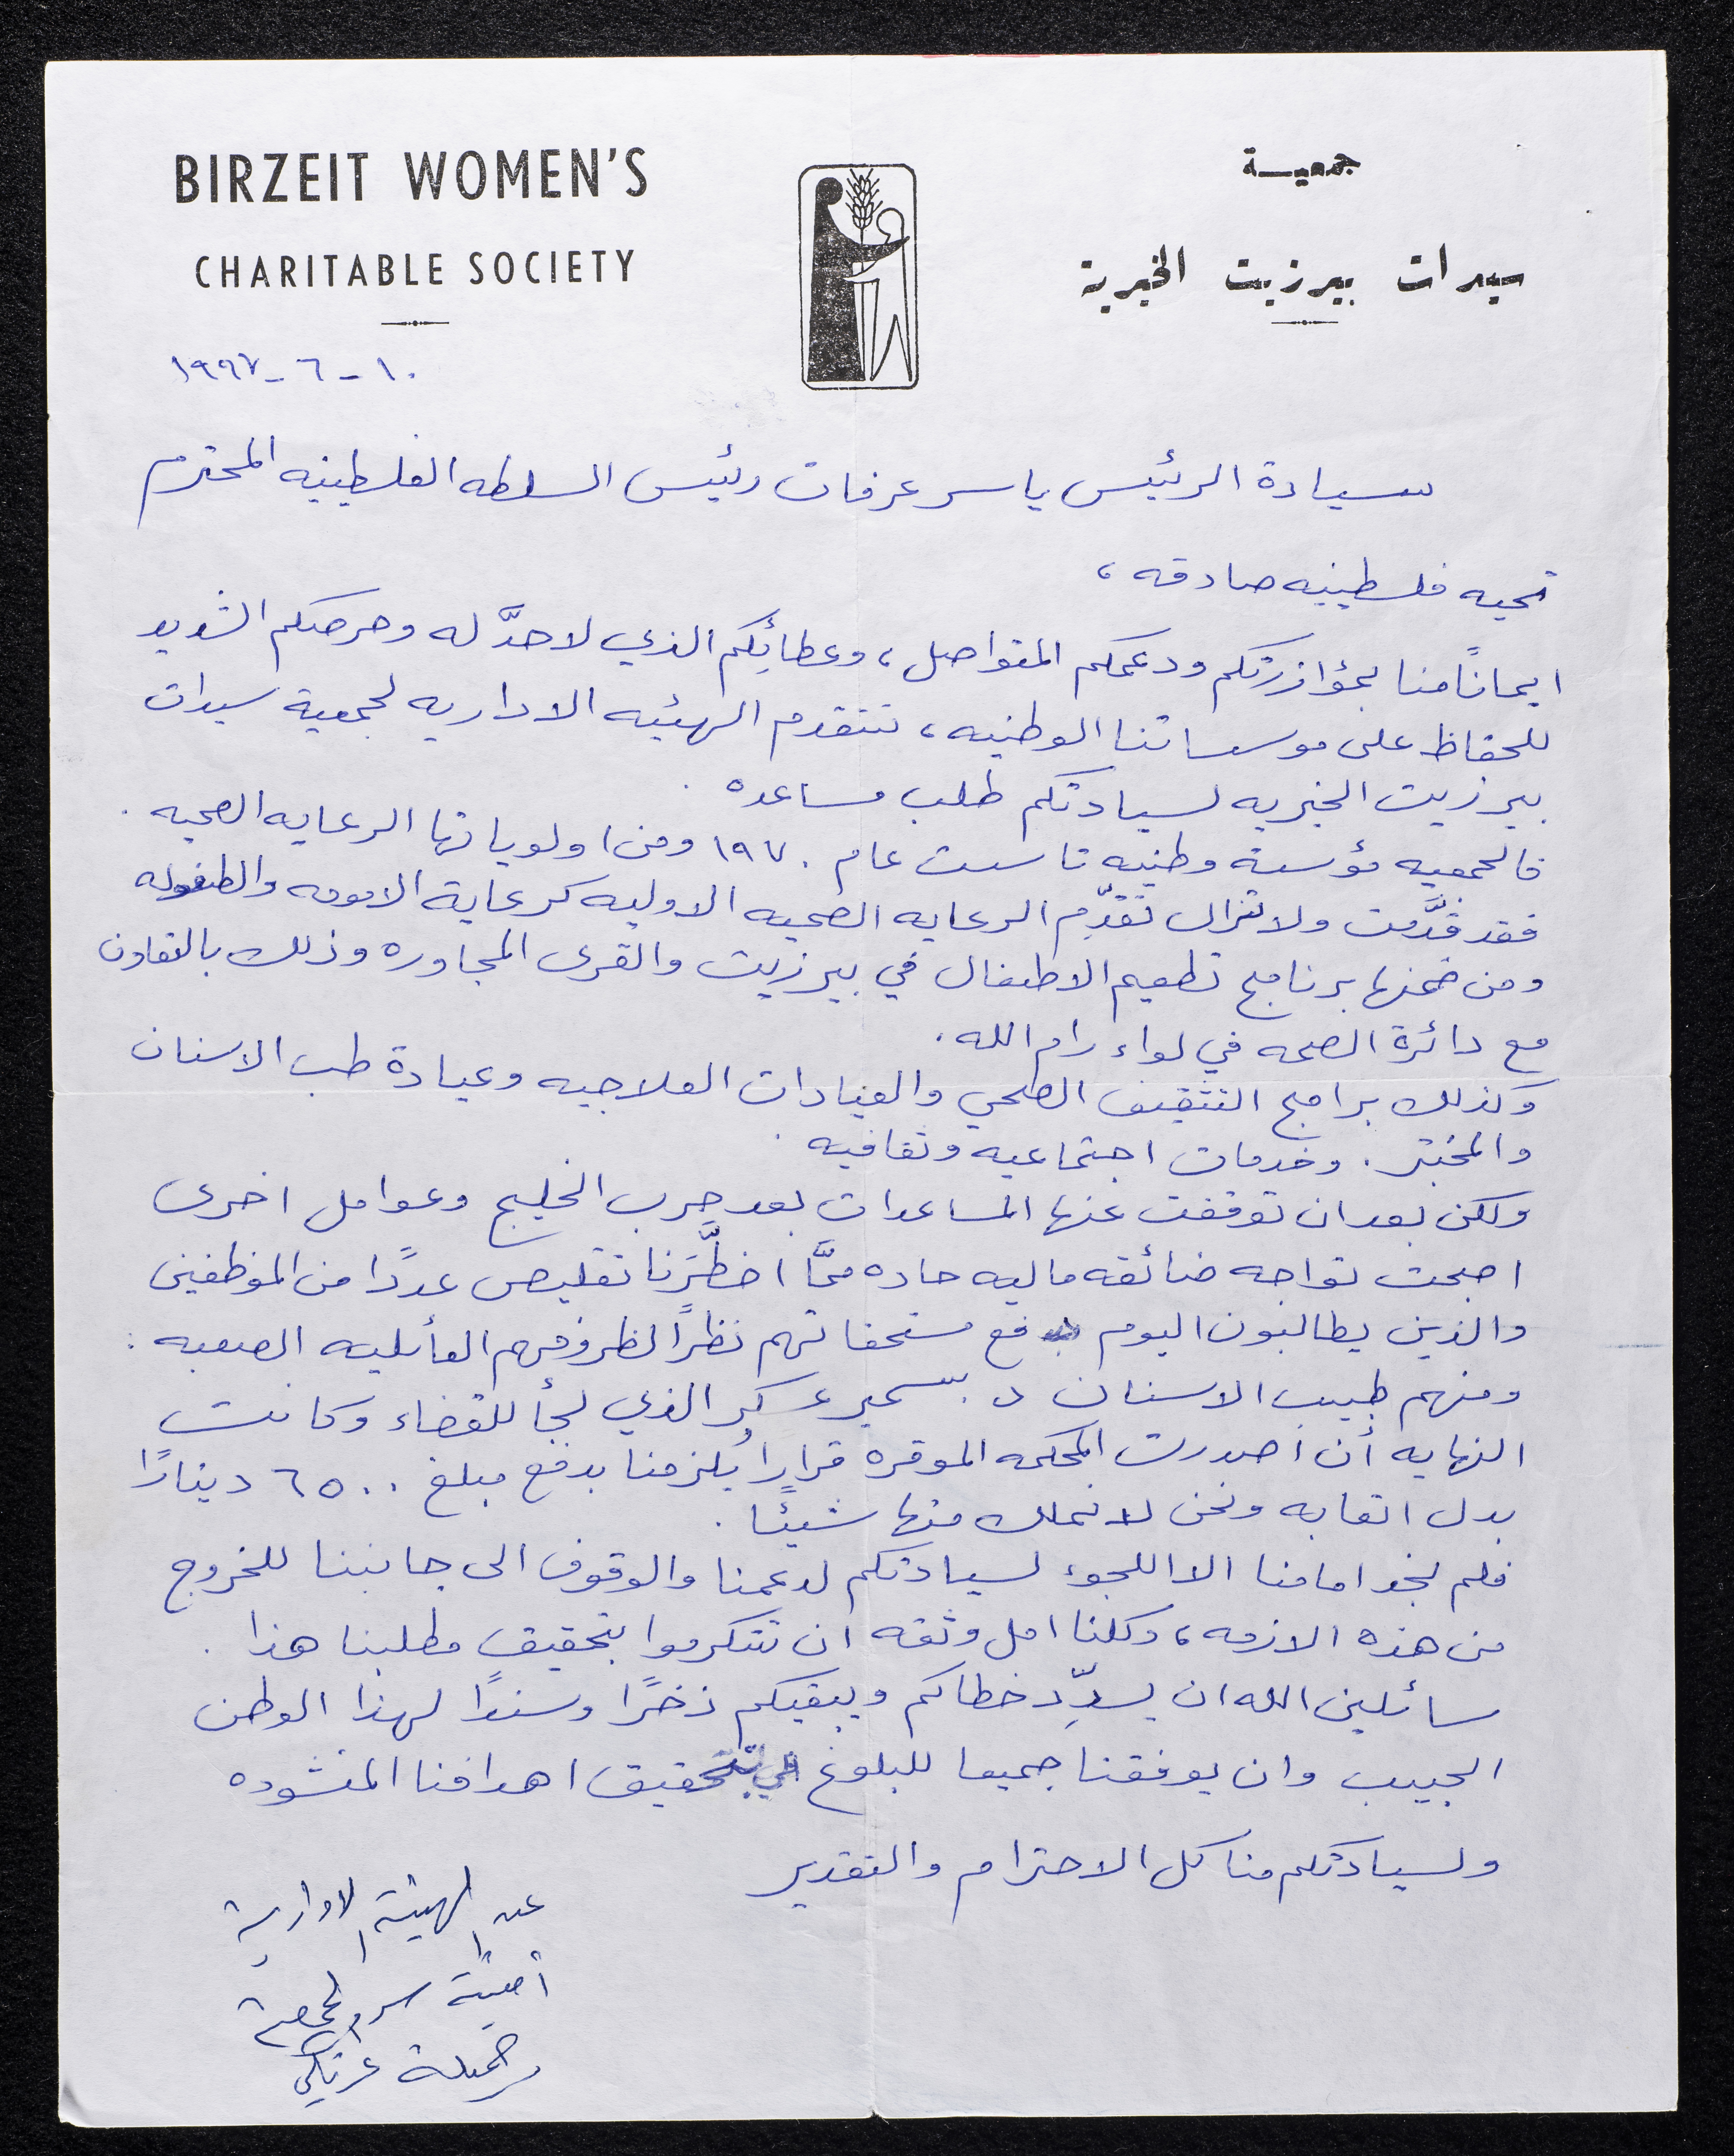 BIRZEIT WOMEN'S
CHARITABLE SOCIETY
جمعية
سيدات بيرزيت الخيرية
١٠-٦-١٩٩٧
سيادة الرئيس ياسر عرفات رئيس السلطه الفلسطينيه المحترم
تحيه فلسطينيه صادقه ،
ايمانًا منا بمؤازرتكم ودعمكم المتواصل ، وعطائِكم الذي لا حدَّ له وحرصكم الشديد
للحفاظ على موسساتنا الوطنيه ، تتقدم الهيئيه الاداريه لجمعية سيدات
بيرزيت الخيريه لسيادتكم طلب مساعده .
فالجمعيه مؤسسة وطنيه تاسست عام ١٩٧٠ ومن اولوياتها الرعايه الصحيه .
فقد قدَّمت ولا تزال تقدّم الرعايه الصحيه الاوليه كرعاية الامومه والطفوله
ومن ضمنها برنامج تطعيم الاطفال في بيرزيت والقرى المجاوره وذلك بالتعاون
مع دائرة الصحه في لواء رام الله .
وكذلك برامج التثقيف الصحي والعيادات العلاجيه وعيادة طب الاسنان
والمختبر . وخدمات اجتماعيه وثقافيه .
ولكن بعد ان توقفت عنها المساعدات بعد حرب الخليج وعوامل اخرى
اصبحت تواجه ضائقه ماليه حاده ممَّا اضطَّرَنا تقليص عددًا من الموظفين
والذين يطالبون اليوم بدفع مستحقاتهم نظرًا لظروفهم العائليه الصعبه :
ومنهم طبيب الاسنان د. سمير عسكر الذي لجأ للقضاء وكانت
النهايه أن أصدرت المحكمه الموقره قرارًا يُلزمنا بدفع مبلغ ٦٥٠٠ دينارًا
بدل اتعابه ونحن لا نملك منها شيئًا .
فلم نجد امامنا الا اللجوء لسيادتكم لدعمنا والوقوف الى جانبنا للخروج
من هذه الازمه ، وكلنا امل وثقه ان تتكرموا بتحقيق مطلبنا هذا .
سائلين الله ان يسدِّد خطاكم ويبقيكم ذخرًا وسندًا لهذا الوطن
الحبيب وان يوفقنا جميعا للبلوغ في تحقيق اهدافنا المنشوده
ولسيادتكم منا كل الاحترام والتقدير
عن الهيئة الادارية
أمينة سر الجمعية
جميلة